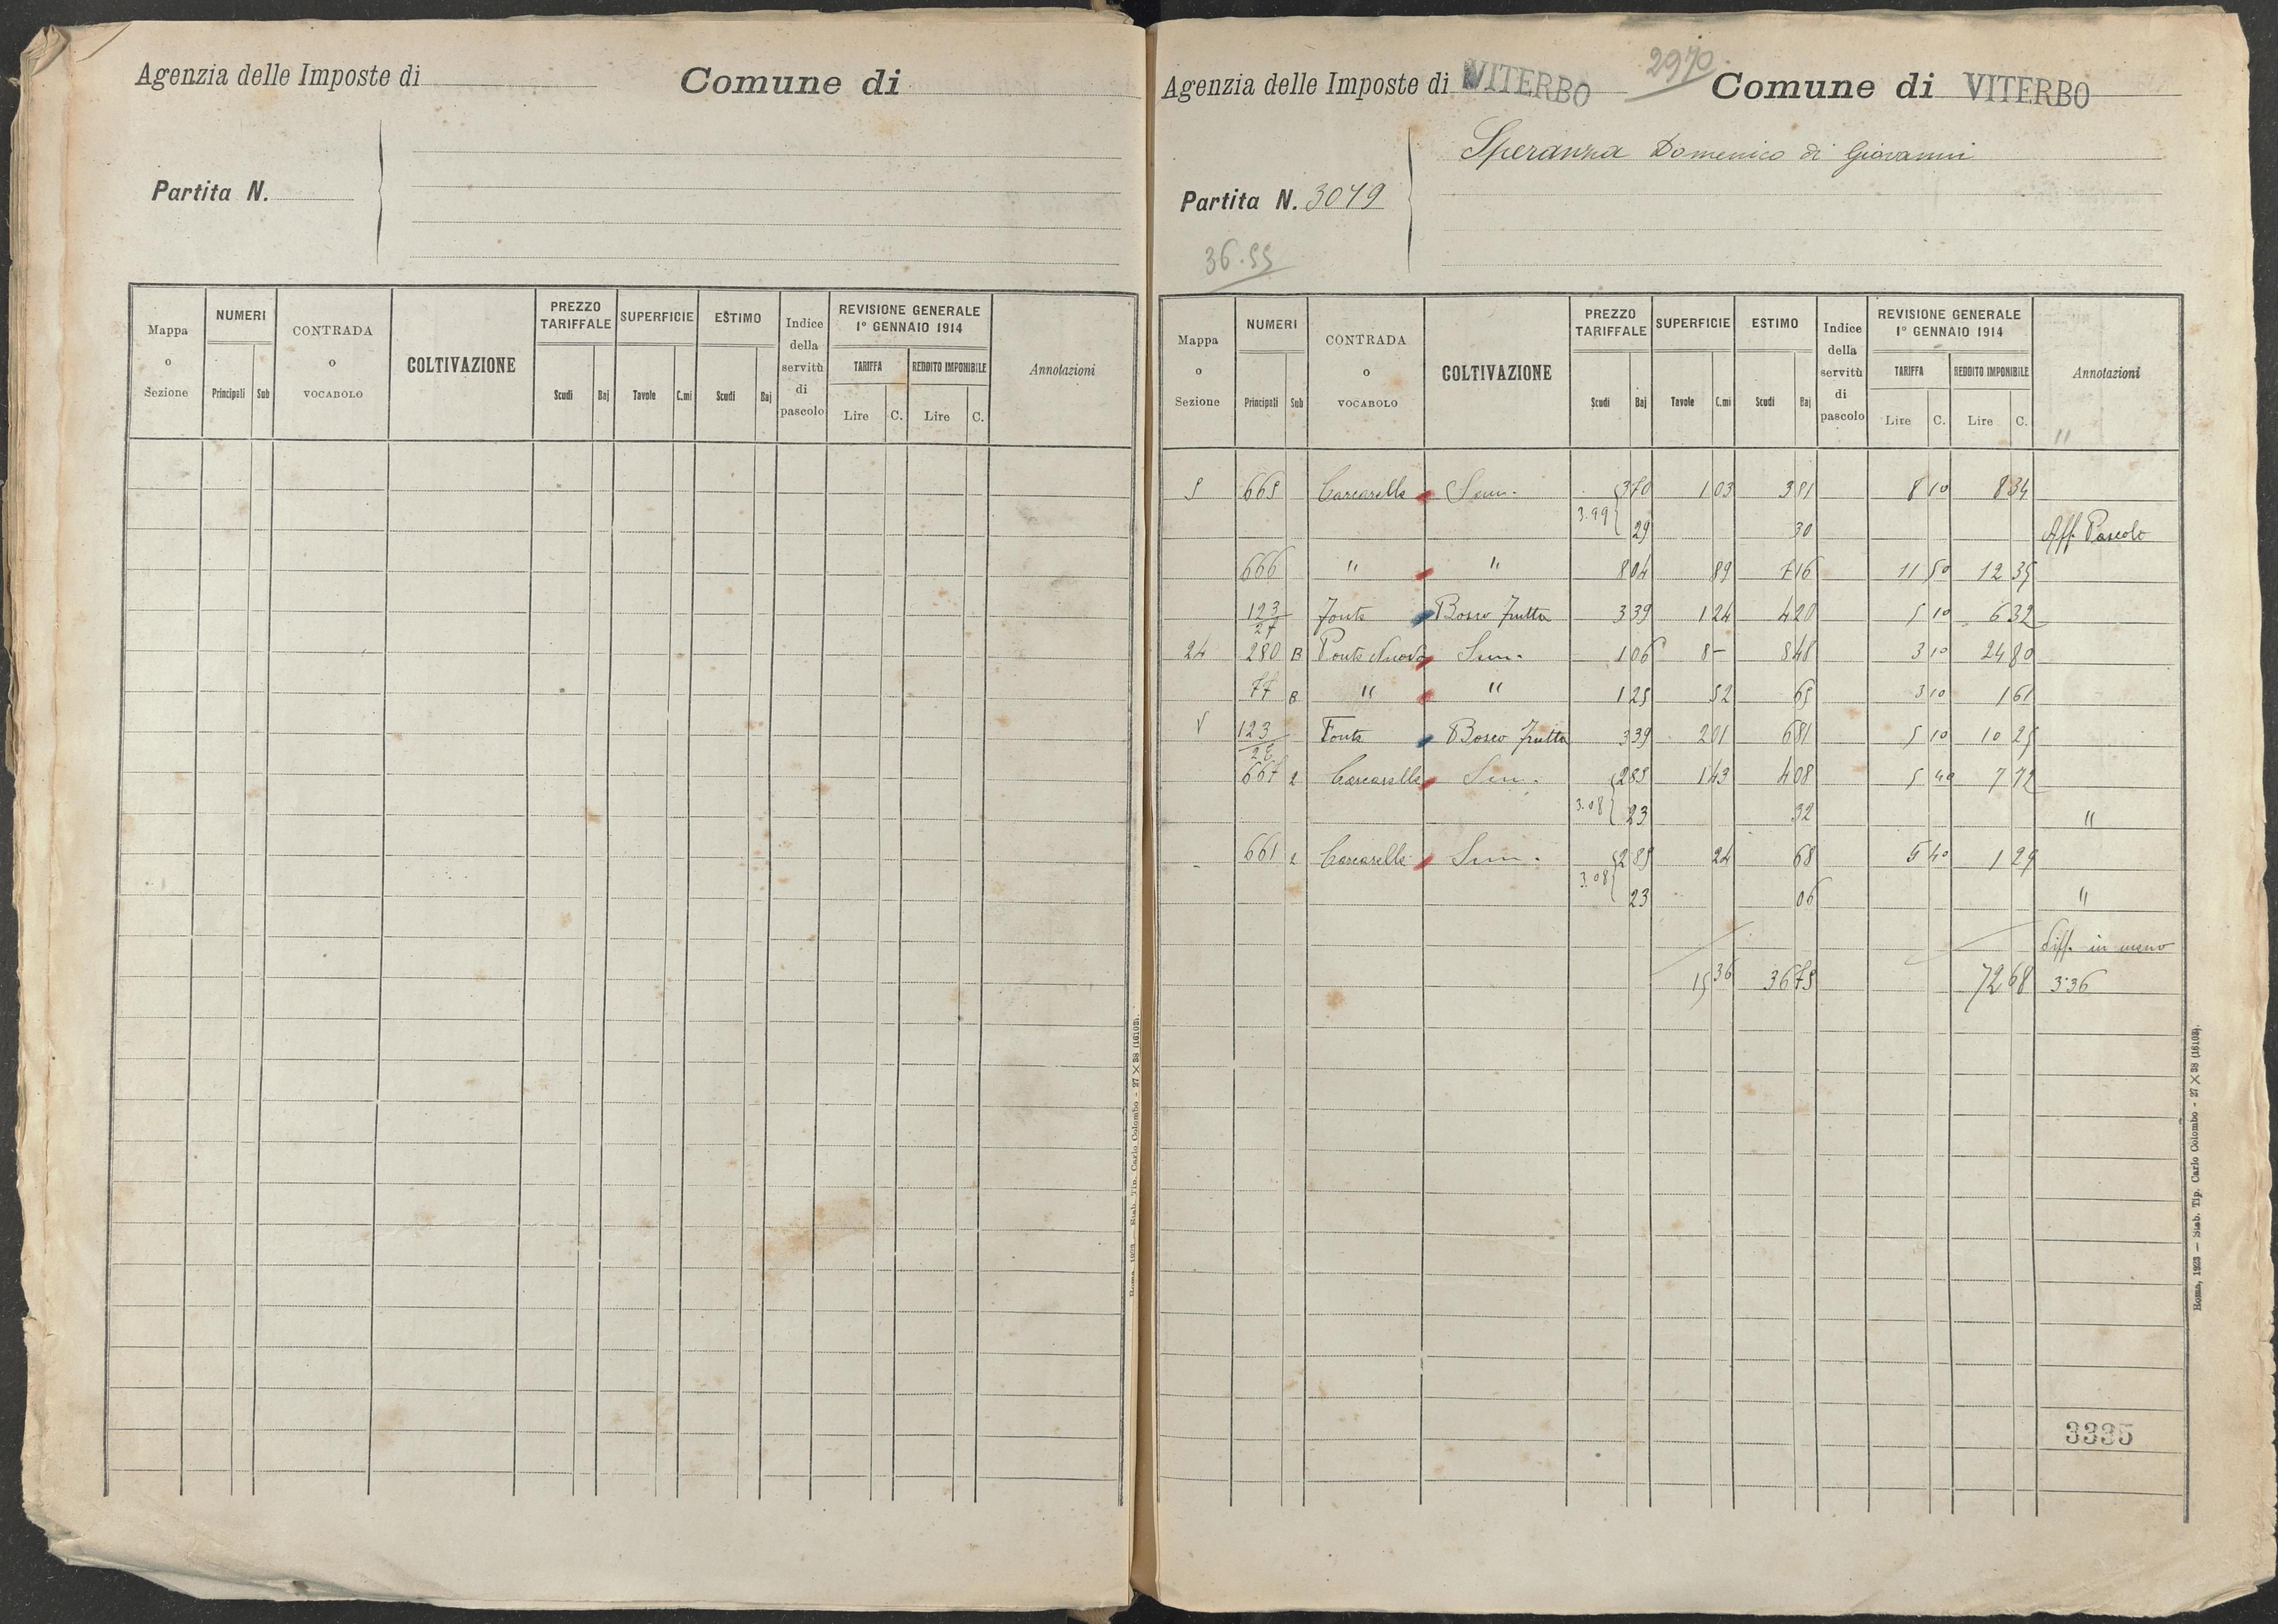 Agenzia delle Imposte di
Comune di
Partita N.
Mappa o Sezione
NUMERI
Principali Sub
CONTRADA o VOCABOLO
COLTIVAZIONE
PREZZO TARIFFALE
Scudi Baj
SUPERFICIE
Tavole C.mi
ESTIMO
Scudi Baj
Indice della servitù di pascolo
REVISIONE GENERALE 1° GENNAIO 1914
TARIFFA
Lire C.
REDDITO IMPONIBILE
Lire C.
Annotazioni
Roma, 1923 — Stab. Tip. Carlo Colombo - 27 × 38 (16103).
2970
Agenzia delle Imposte di VITERBO Comune di VITERBO
Speranza Domenico di Giovanni
Partita N. 3079
36.55
Mappa o Sezione
NUMERI
Principali Sub
CONTRADA o VOCABOLO
COLTIVAZIONE
PREZZO TARIFFALE
Scudi Baj
SUPERFICIE
Tavole C.mi
ESTIMO
Scudi Baj
Indice della servitù di pascolo
REVISIONE GENERALE 1° GENNAIO 1914
TARIFFA
Lire C.
REDDITO IMPONIBILE
Lire C.
Annotazioni
"
5 665 Carcarelle Sem. 3 70 1 03 3 81 8 10 8 34
3.99 29 30 Aff. Pascolo
666 " " 8 04 89 7 16 11 50 12 35
123/27 Fonte Bosco frutta 3 39 1 24 4 20 5 10 6 32
24 280 B Ponte Nuovo Sem. 1 06 8 – 8 48 3 10 24 80
77 B " " 1 25 52 65 3 10 1 61
5 123/28 Fonte Bosco frutta 3 39 2 01 6 81 5 10 10 25
667 2 Carcarelle Sem. 2 85 1 43 4 08 5 40 7 72
3.08 23 32 "
661 2 Carcarelle Sem. 2 85 24 68 5 40 1 29
3.08 23 06 "
Diff. in meno
15 36 36 75 72 68 3.36
3335
Roma, 1923 — Stab. Tip. Carlo Colombo - 27 × 38 (16103).